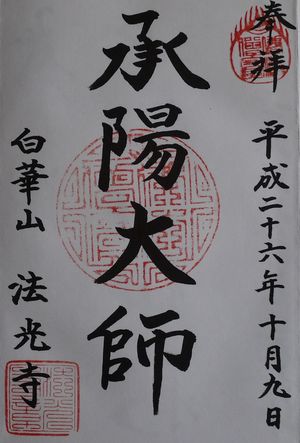 奉拝
平成二十六年十月九日
承陽大師
白華山 法光寺